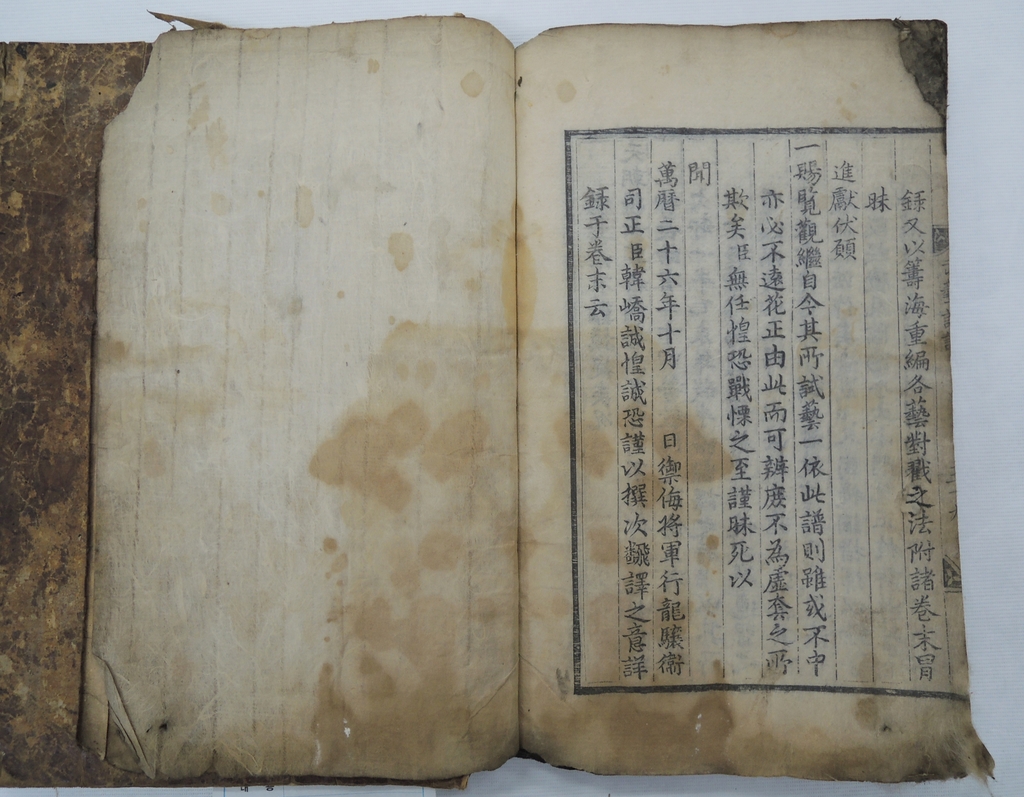 錄又以籌海重編各藝對戳之法附諸卷末冒
昧
進獻伏願
一賜覽觀繼自今其所試藝一依此譜則雖或不中
亦必不遠花正由此而可辨庻不為虛套之所
欺矣臣無任惶恐戰慄之至謹昧死以
聞
萬曆二十六年十月 日禦侮將軍行龍驤衛
司正臣韓嶠誠惶誠恐謹以撰次飜譯之意詳
錄于卷末云